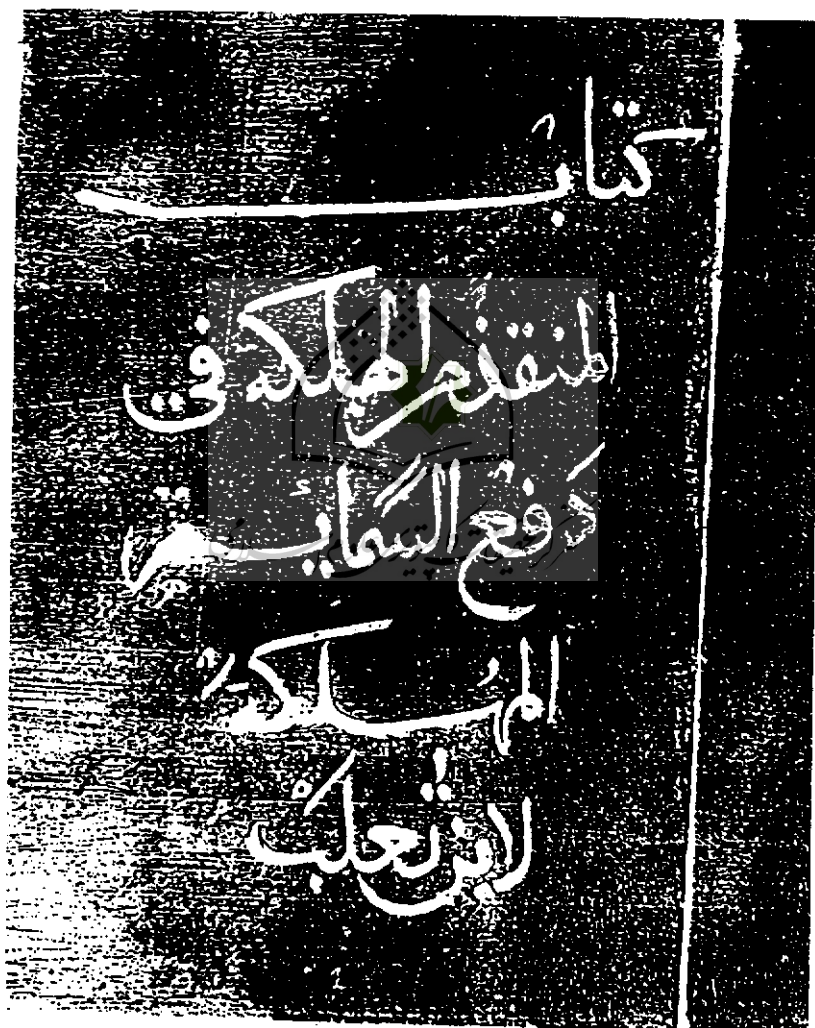 كتاب
المنقذ من الهلكه في
دفع السمايم
المهلكة
لابن ثعلب